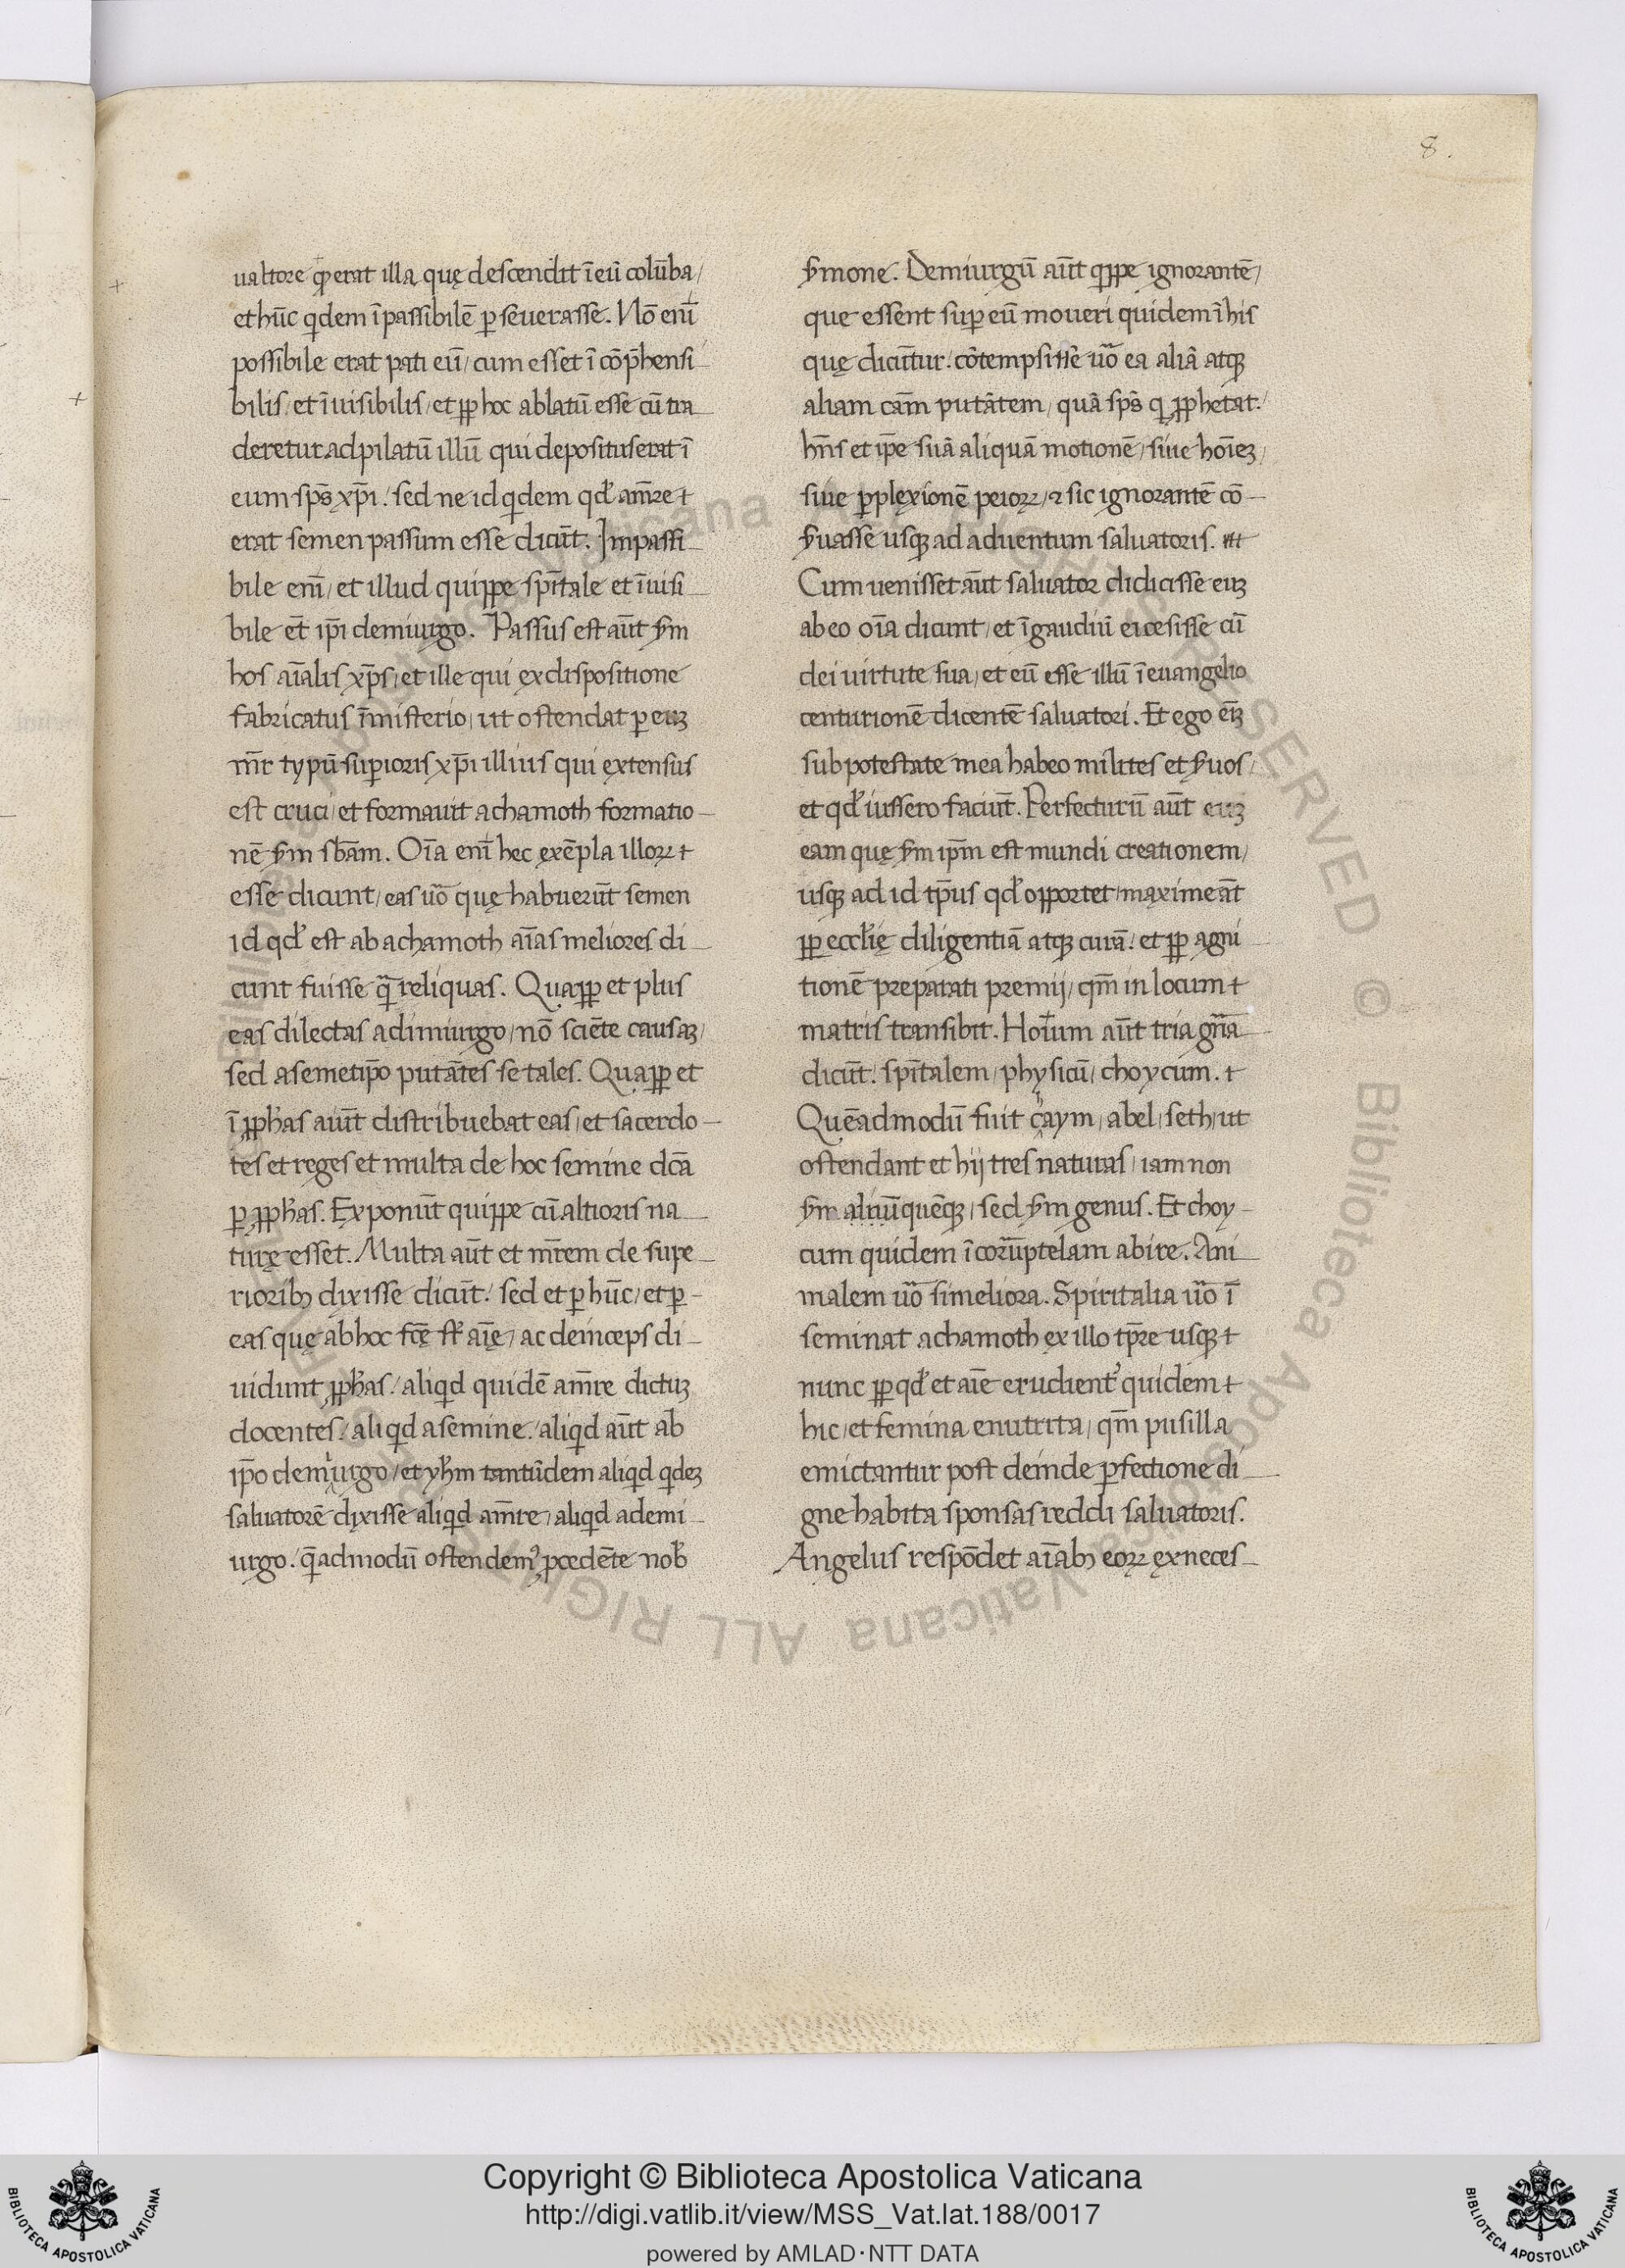 8.
ualtore qp erat illa quę descendit ī eū colūba/
et hūc qdem īpassibilē pseuerasse. Nō enī
possibile erat pati eū/ cum esset ī cōp̄hensi
bilis/ et īuisibilis/ et pp hoc ablatū esse cū tra
deretur ad pilatū illū qui depositus erat ī
eum sps̄ xp̄i/ sed ne id qdem qd' am̄re +
erat semen passum esse dicūt. Impassi
bile enī/ et illud quippe spi̅tale et īuisi
bile et̄ ip̄i demiurgo. Passus est aūt s̄m
hos aīalis xp̄s/ et ille qui ex dispositione
fabricatus ī misterio/ ut ostendat p euꝫ
m̄r typū supioris xp̄i illius qui extensus
est cruci/ et formauit achamoth formatio
nē s̄m sb̄am. Oīa enī hec exēpla illoꝝ +
esse dicunt/ eas uo̅ quę habuerūt semen
id qd' est ab achamoth aīas meliores di
cunt fuisse q̄ reliquas. Quapp et plus
eas dilectas a dimiurgo/ nō sciēte causaꝫ/
sed a semetip̄o putātes se tales. Quapp et
ī pph'as aiūt distribuebat eas/ et sacerdo
tes et reges et multa de hoc semine dc̄a
p pph'as. Exponūt quippe cū altioris na
turę esset. Multa aūt et m̄rem de supe
rioribꝫ dixisse dicūt/ sed et p hūc/ et p
eas quę ab hoc fc̄ę st' aīę/ ac deinceps di
uidunt pph'as/ aliqd quidē am̄re dictuꝫ
docentes/ aliqd a semine/ aliqd aūt ab
ip̄o demiurgo/ et yh̄m tantūdem aliqd qdeꝫ
saluatorē dixisse aliqd am̄re/ aliqd a demi
urgo/ q̄admodū ostendemꝰ pcedēte nob'
s̄mone. Demiurgū aūt qppe ignorantē/
que essent sup eū moueri quidem ī his
quę dicūtur/ cōtempsisse uo̅ ea aliā atqꝫ
aliam cām putātem/ quā sps̄ q pphetat/
hn̄s et ip̄e suā aliquā motionē/ siue hoīeꝫ/
siue pplexionē peioꝝ/ ⁊ sic ignorantē cō
s̄uasse usqꝫ ad aduentum saluatoris.
Cum uenisset aūt saluator didicisse euꝫ
ab eo oīa dicunt/ et ī gaudiū ei cesisse cū
dei uirtute sua/ et eū esse illū ī euangelio
centurionē dicentē saluatori. Et ego eīꝫ
sub potestate mea habeo milites et s̄uos/
et qd' iussero faciūt. Perfecturū aūt euꝫ
eam quę s̄m ip̄m est mundi creationem/
usqꝫ ad id tp̄us qd' opportet/ maxime āt
pp eccl'ię diligentiā atqꝫ curā/ et pp agni
tionē preparati premij/ qm̄ in locum +
matris transibit. Hoīum aūt tria gn̄a
dicūt/ spi̅talem/ physicū/ choycum. +
Quēadmodū fuit caym/ abel/ seth/ ut
ostendant et hij tres naturas/ iam non
s̄m aliuūquēqꝫ/ sed s̄m genus. Et choy
cum quidem ī corūptelam abire. Ani
malem uo̅ si meliora. Spiritalia uo̅ ī
seminat achamoth ex illo tp̄re usqꝫ +
nunc pp qd' et aīe erudientᷣ quidem +
hic/ et semina enutrita/ qm̄ pusilla
emictantur post deinde pfectione di
gne habita sponsas reddi saluatoris.
Angelus respōdet aīabꝫ eoꝝ ex neces
Copyright © Biblioteca Apostolica Vaticana
http://digi.vatlib.it/view/MSS_Vat.lat.188/0017
powered by AMLAD·NTT DATA